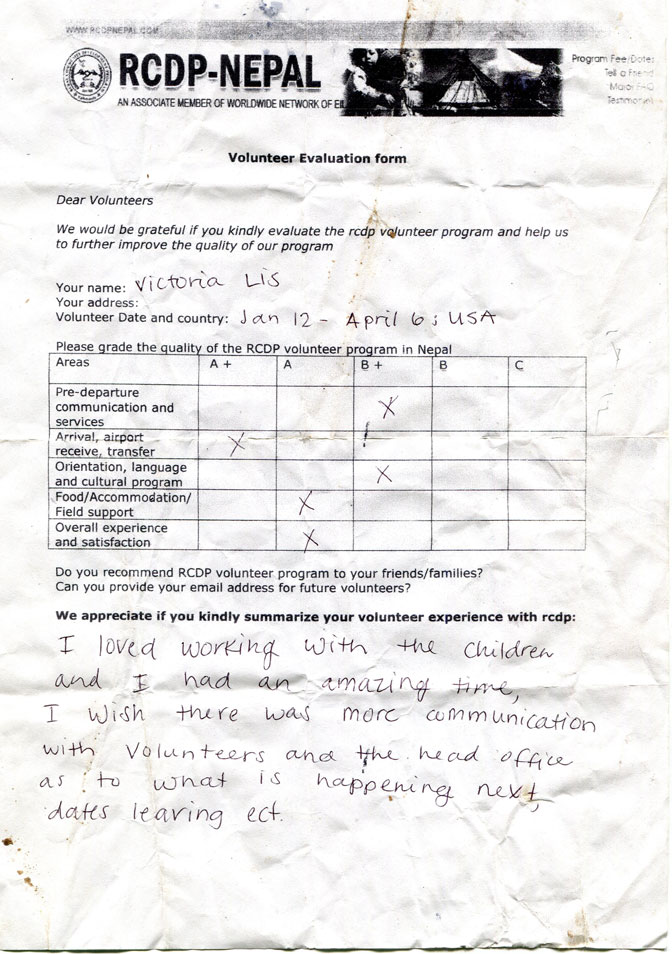 WWW.RCDPNEPAL.COM
RCDP-NEPAL
AN ASSOCIATE MEMBER OF WORLDWIDE NETWORK OF EIL
Program Fee/Dates
Tell a Friend
Major FAQ
Testimonial
Volunteer Evaluation form
Dear Volunteers
We would be grateful if you kindly evaluate the rcdp volunteer program and help us
to further improve the quality of our program
Your name: Victoria Lis
Your address:
Volunteer Date and country: Jan 12 - April 6; USA
Please grade the quality of the RCDP volunteer program in Nepal
Areas A + A B + B C
Pre-departure
communication and
services X
Arrival, airport
receive, transfer X
Orientation, language
and cultural program X
Food/Accommodation/
Field support X
Overall experience
and satisfaction X
Do you recommend RCDP volunteer program to your friends/families?
Can you provide your email address for future volunteers?
We appreciate if you kindly summarize your volunteer experience with rcdp:
I loved working with the children
and I had an amazing time,
I wish there was more communication
with volunteers and the head office
as to what is happening next,
dates leaving ect.